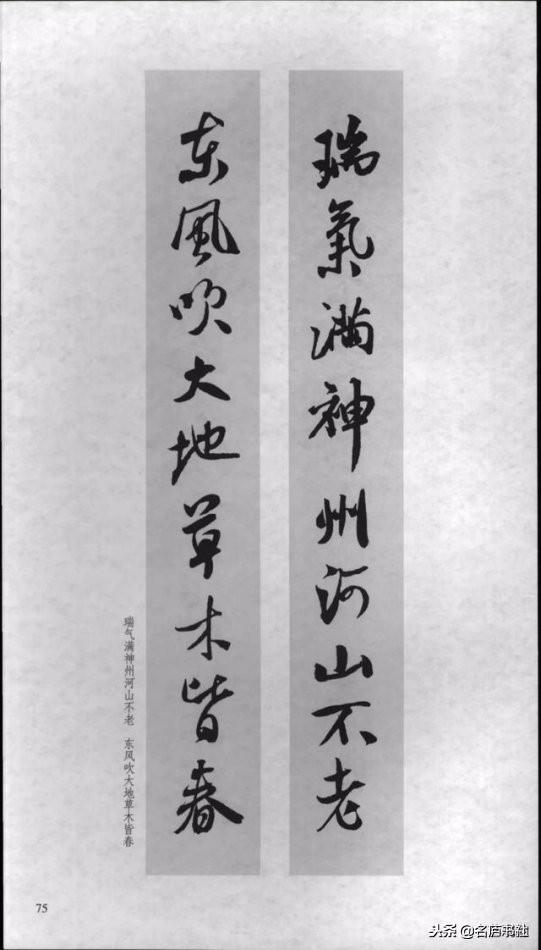 瑞氣满神州河山不老
东風吹大地草木皆春
瑞气满神州河山不老 东风吹大地草木皆春
75
头条@名庐书社